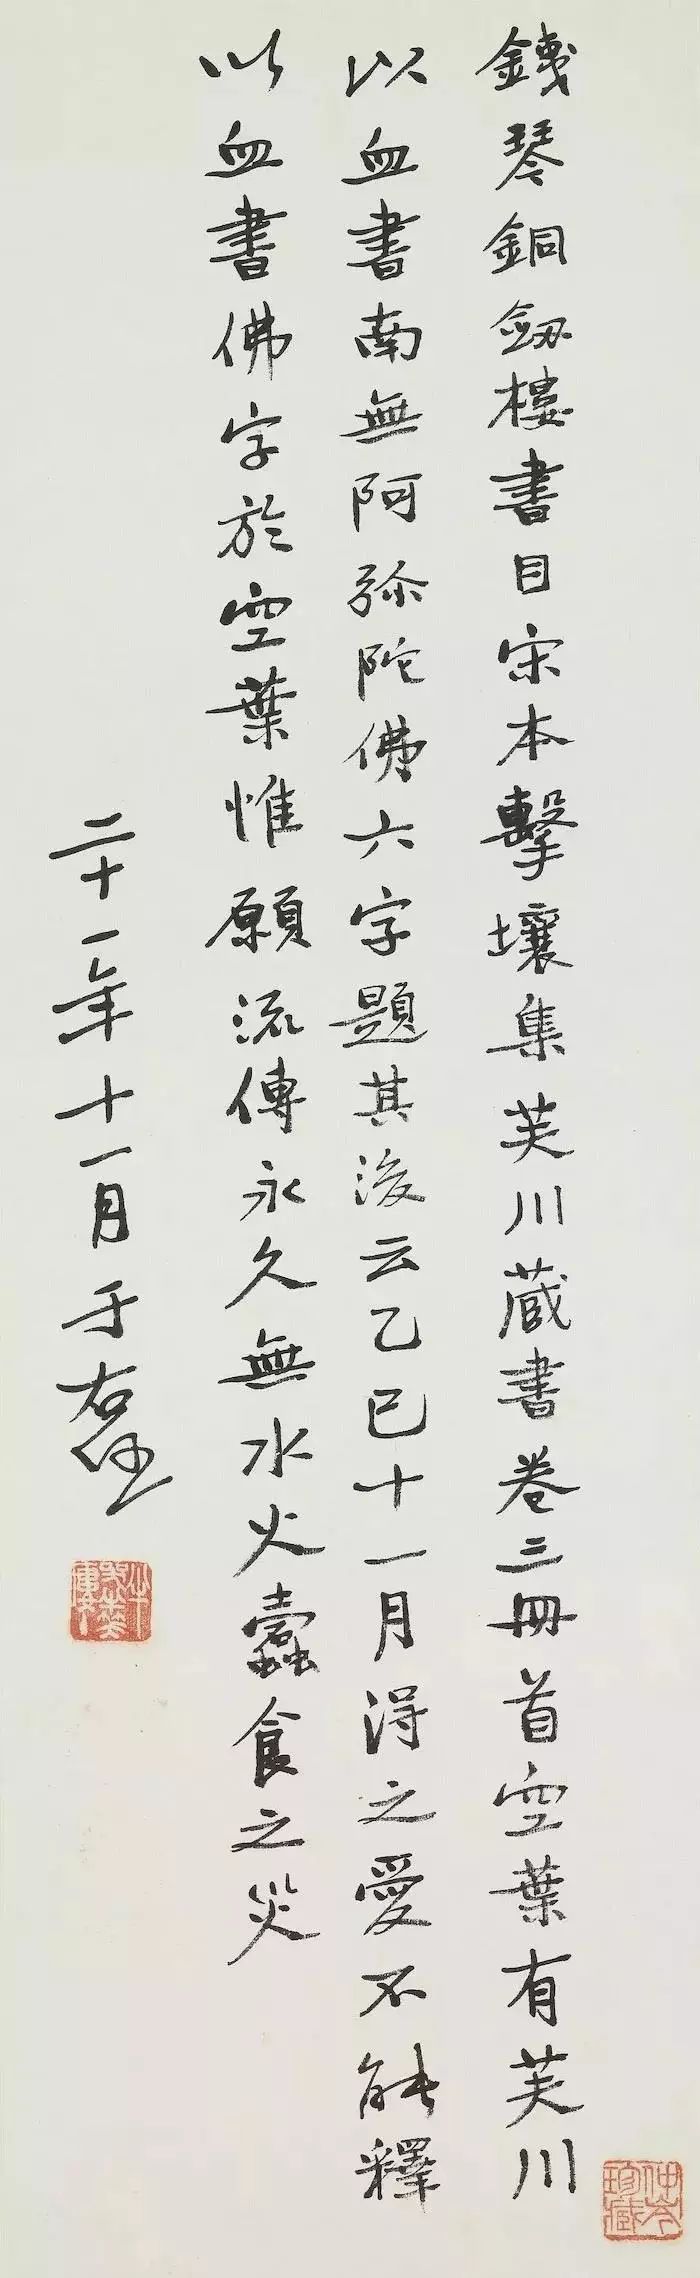 銕琴銅劒樓書目宋本擊壤集芙川藏書卷三冊首空葉有芙川
以血書南無阿弥陀佛六字題其後云乙巳十一月得之愛不能釋
以血書佛字於空葉惟願流傳永久無水火蠹食之災
二十一年十一月于右任
珍藏